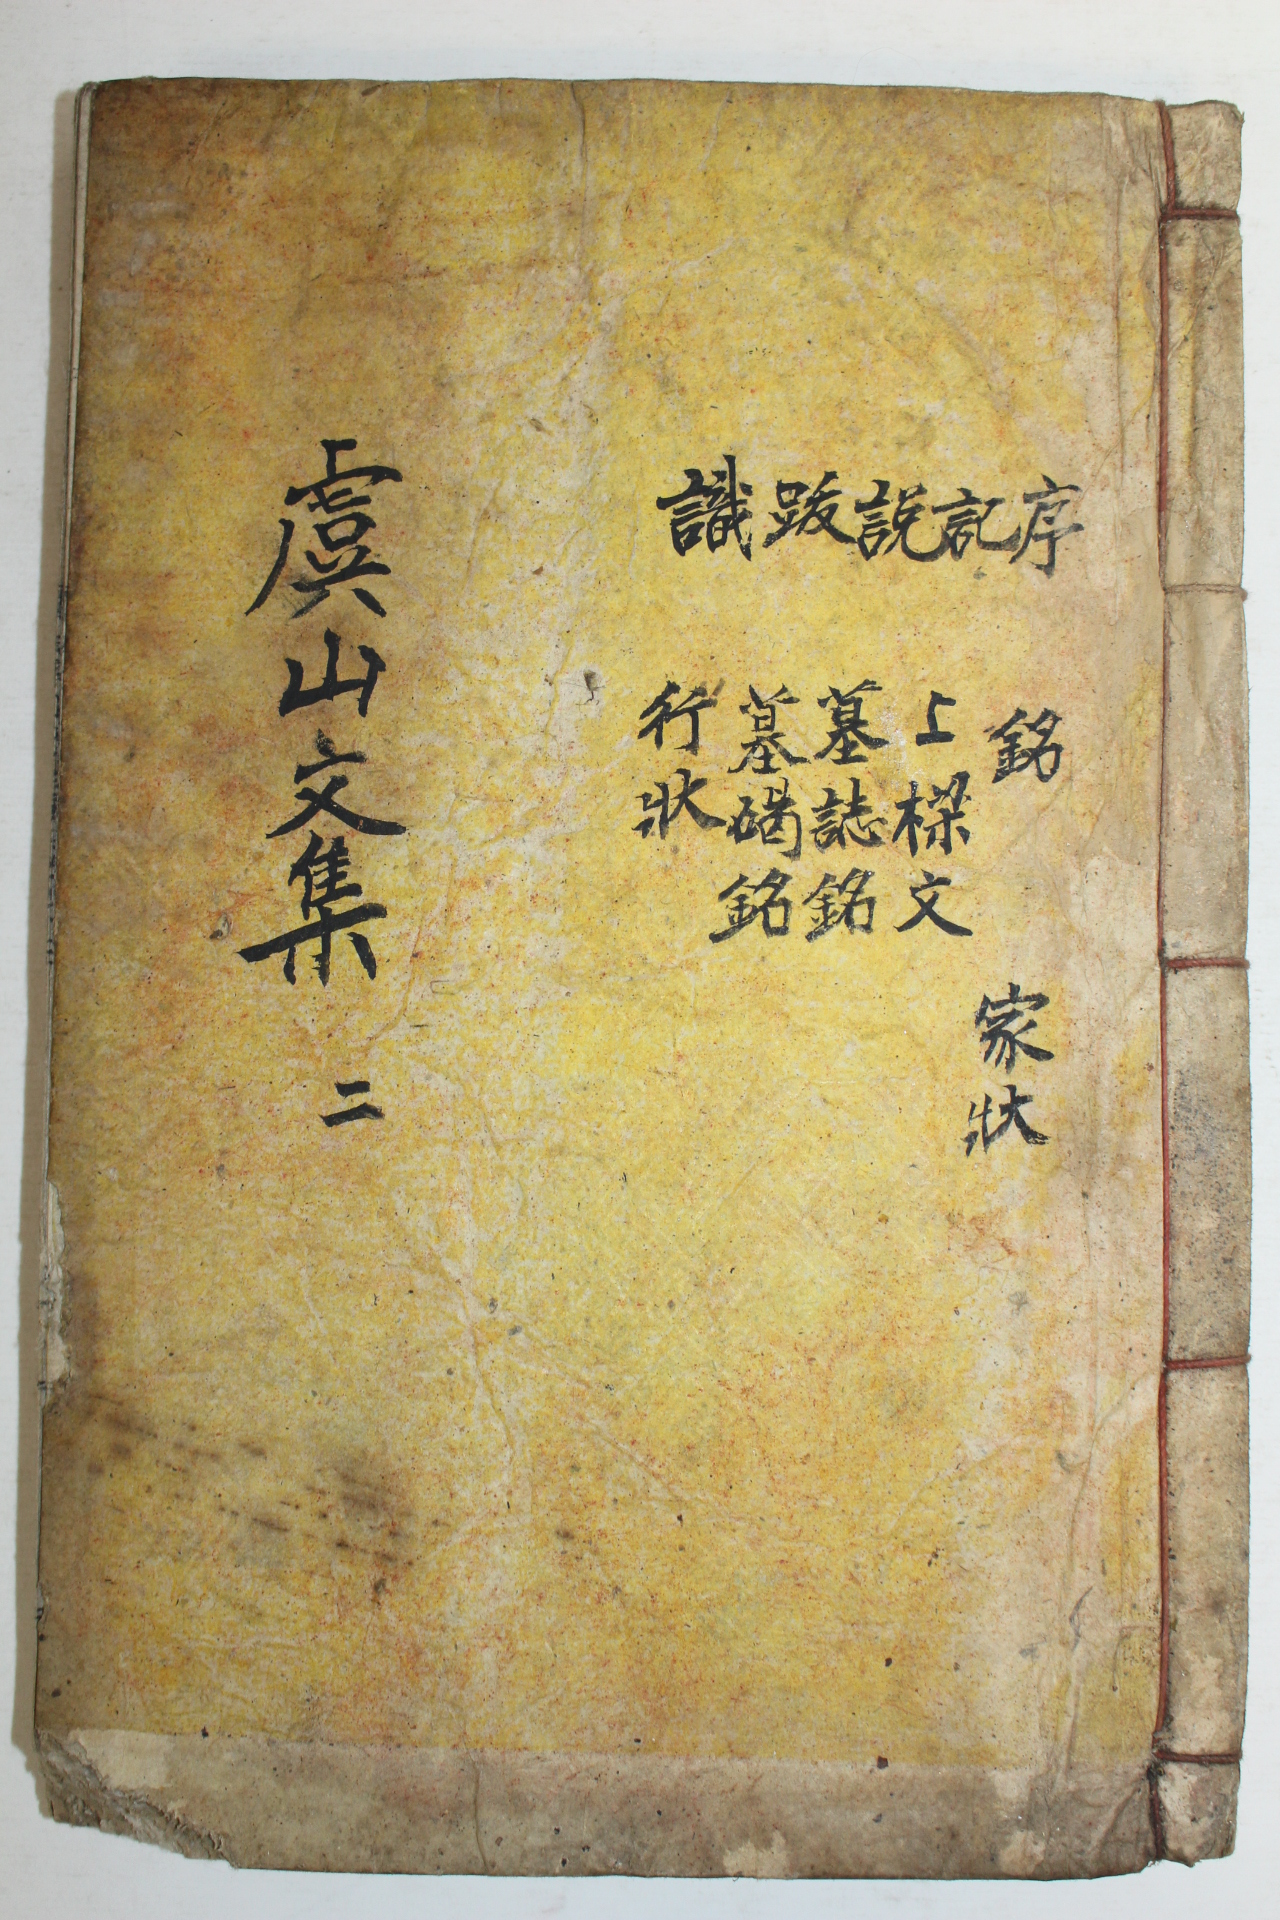 序 記 說 跋 識
銘 上樑文 墓誌銘 墓碣銘 行狀
家狀
虞山文集 二